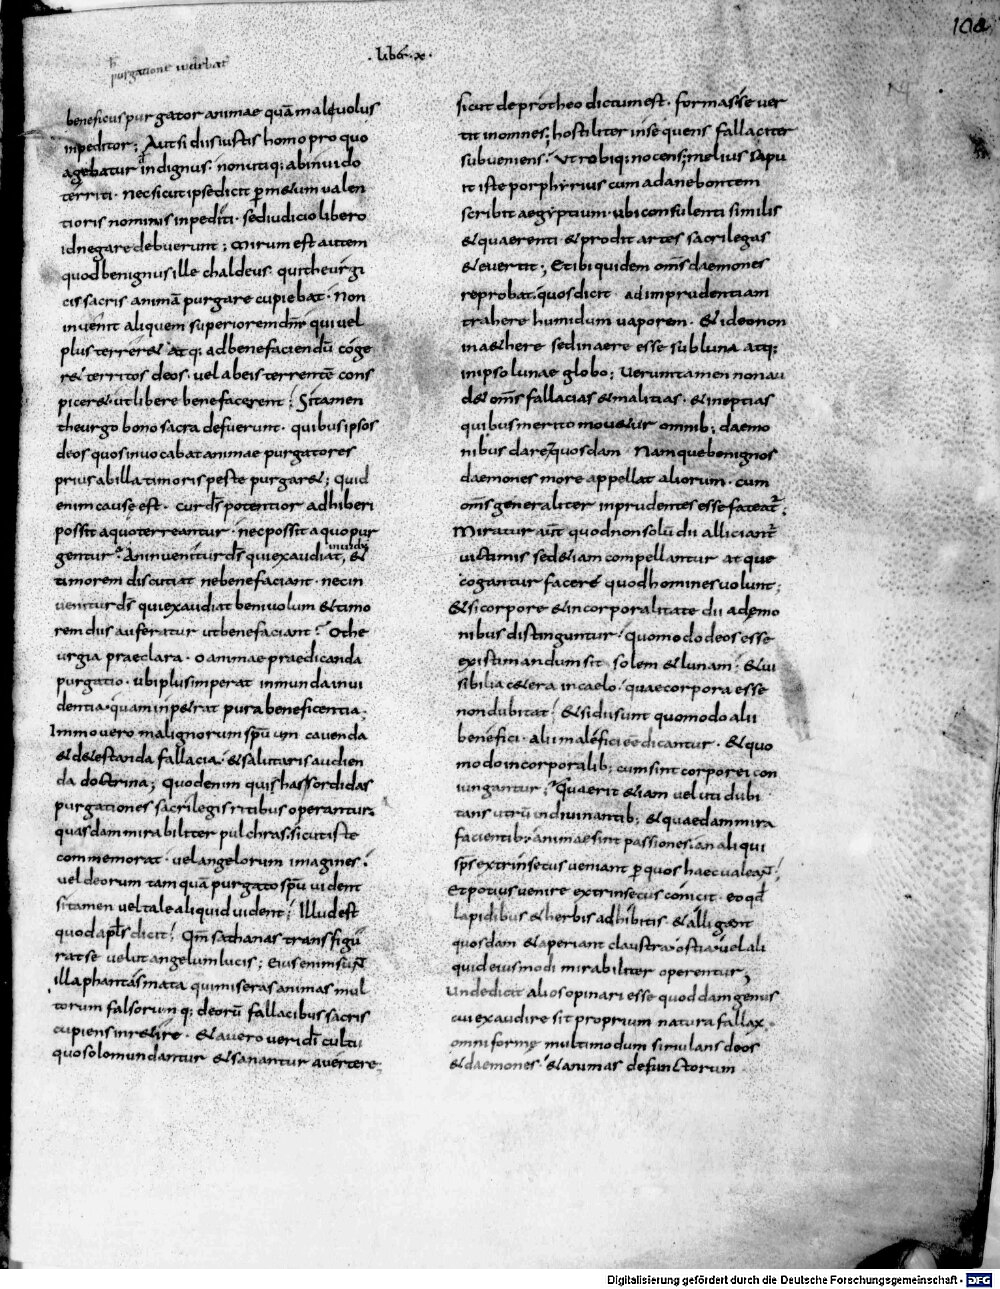 100
· liber · x ·
purgatione
beneficus purgator animae quā maleuolus
inpeditor; Aut si dii iustis homo pro quo
agebatur indignus · non utiq; ab inuido
territi · nec sicut ipse dicit p̄ metum ualen
tioris nominis inpediti · sed iudicio libero
id negare debuerunt; Mirum est autem
quod benignus ille chaldeus · qui theurgi
cis sacris animā purgare cupiebat · Non
inuenit aliquem superiorem dm̄ qui uel
plus terreret · atq; ad benefaciendū coge
ret territos deos · uel ab eis terrentē cons
piceret · ut libere benefacerent; Si tamen
theurgo bono sacra defuerunt · quibus ipsos
deos quos inuocabat animae purgatores
prius ab illa timoris peste purgaret; quid
enim causę est · cur ds̄ potentior adhiberi
possit a quo terreantur · nec possit a quo pur
gentur? An inuenitur ds̄ qui exaudiat inuidū, et
timorem discutiat ne benefaciant · nec in
uenitur ds̄ qui exaudiat beniuolum et timo
rem diis auferatur ut benefaciant? O the
urgia praeclara · o animae praedicanda
purgatio · ubi plus imperat inmunda inui
dentia · quam inpetrat pura beneficentia;
Immo uero malignorum spūum cauenda
et detestanda fallacia · et salutaris audien
da doctrina; Quod enim qui has sordidas
purgationes sacrilegis ritibus operantur
quasdam mirabiliter pulchras · sicut iste
commemorat · uel angelorum imagines ·
uel deorum tamquā purgato spū uident
si tamen uel tale aliquid uident; Illud est
quod apl̄s dicit; Qm̄ sathanas transfigu
rat se uelut angelum lucis; Eius enim sunt
illa phantasmata qui miseras animas mul
torum falsorumq; deorū fallacibus sacris
cupiens inretire · et a uero ueri dī cultu
quo solo mundantur et sanantur auertere;
sicut de protheo dictum est · formas se uer
tit in omnes; hostiliter insequens fallaciter
subueniens · Utrobiq; nocens; melius sapu
it iste porphyrius cum ad anebontem
scribit aegyptium · ubi consulenti similis
et quaerenti et prodit artes sacrilegas
et euertit; Et ibi quidem om̄s daemones
reprobat · quos dicit ad imprudentiam
trahere humidum uaporem · Et ideo non
in aethere sed in aere esse sub luna atq;
in ipso lunae globo; Uerumtamen non au
det om̄s fallacias et malitias · et ineptias
quibus merito mouetur omnib; daemo
nibus dare; quosdam Namque benignos
daemones more appellat aliorum · cum
om̄s generaliter inprudentes esse fateat̄;
Miratur aūt quod non solū dii alliciant̄
uictimis sed etiam compellantur atque
cogantur facere quod homines uolunt;
Et si corpore et incorporalitate dii a dęmo
nibus distinguntur? quomodo deos esse
existimandum sit solem et lunam; et ui
sibilia cetera in caelo · quae corpora esse
non dubitat? Et si dii sunt quomodo alii
benefici · alii malefici ee dicantur · Et quo
modo incorporalib; cum sint corporei con
iungantur; Quaerit etiam ueluti dubi
tans utrū in diuinantib; et quaedam mira
facientib; animae sint passiones · an aliqui
sps̄ extrinsecus ueniant p̄ quos haec ualeant;
Et potius uenire extrinsecus conicit · eo qd̄
lapidibus et herbis adhibitis · et alligent
quosdam et aperiant claustra ostia · uel ali
quid eiusmodi mirabiliter operentur;
Unde dicit alios opinari esse quoddam genus
cui exaudire sit proprium natura fallax ·
omniforme multimodum simulans deos
et daemones · et animas defunctorum
Digitalisierung gefördert durch die Deutsche Forschungsgemeinschaft - DFG